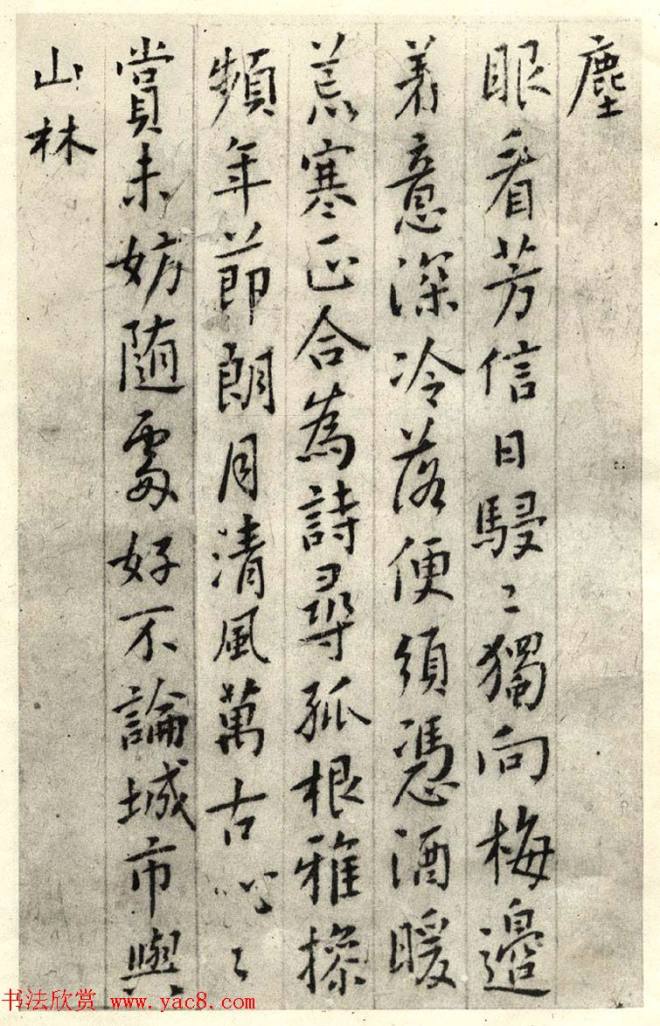 塵
眼看芳信日駸〻獨向梅邊
著意深冷落便須憑酒暖
荒寒正合為詩尋孤根雅操
頻年節朗月清風萬古心〻
賞未妨随處好不論城市與
山林
书法欣赏 www.yac8.com